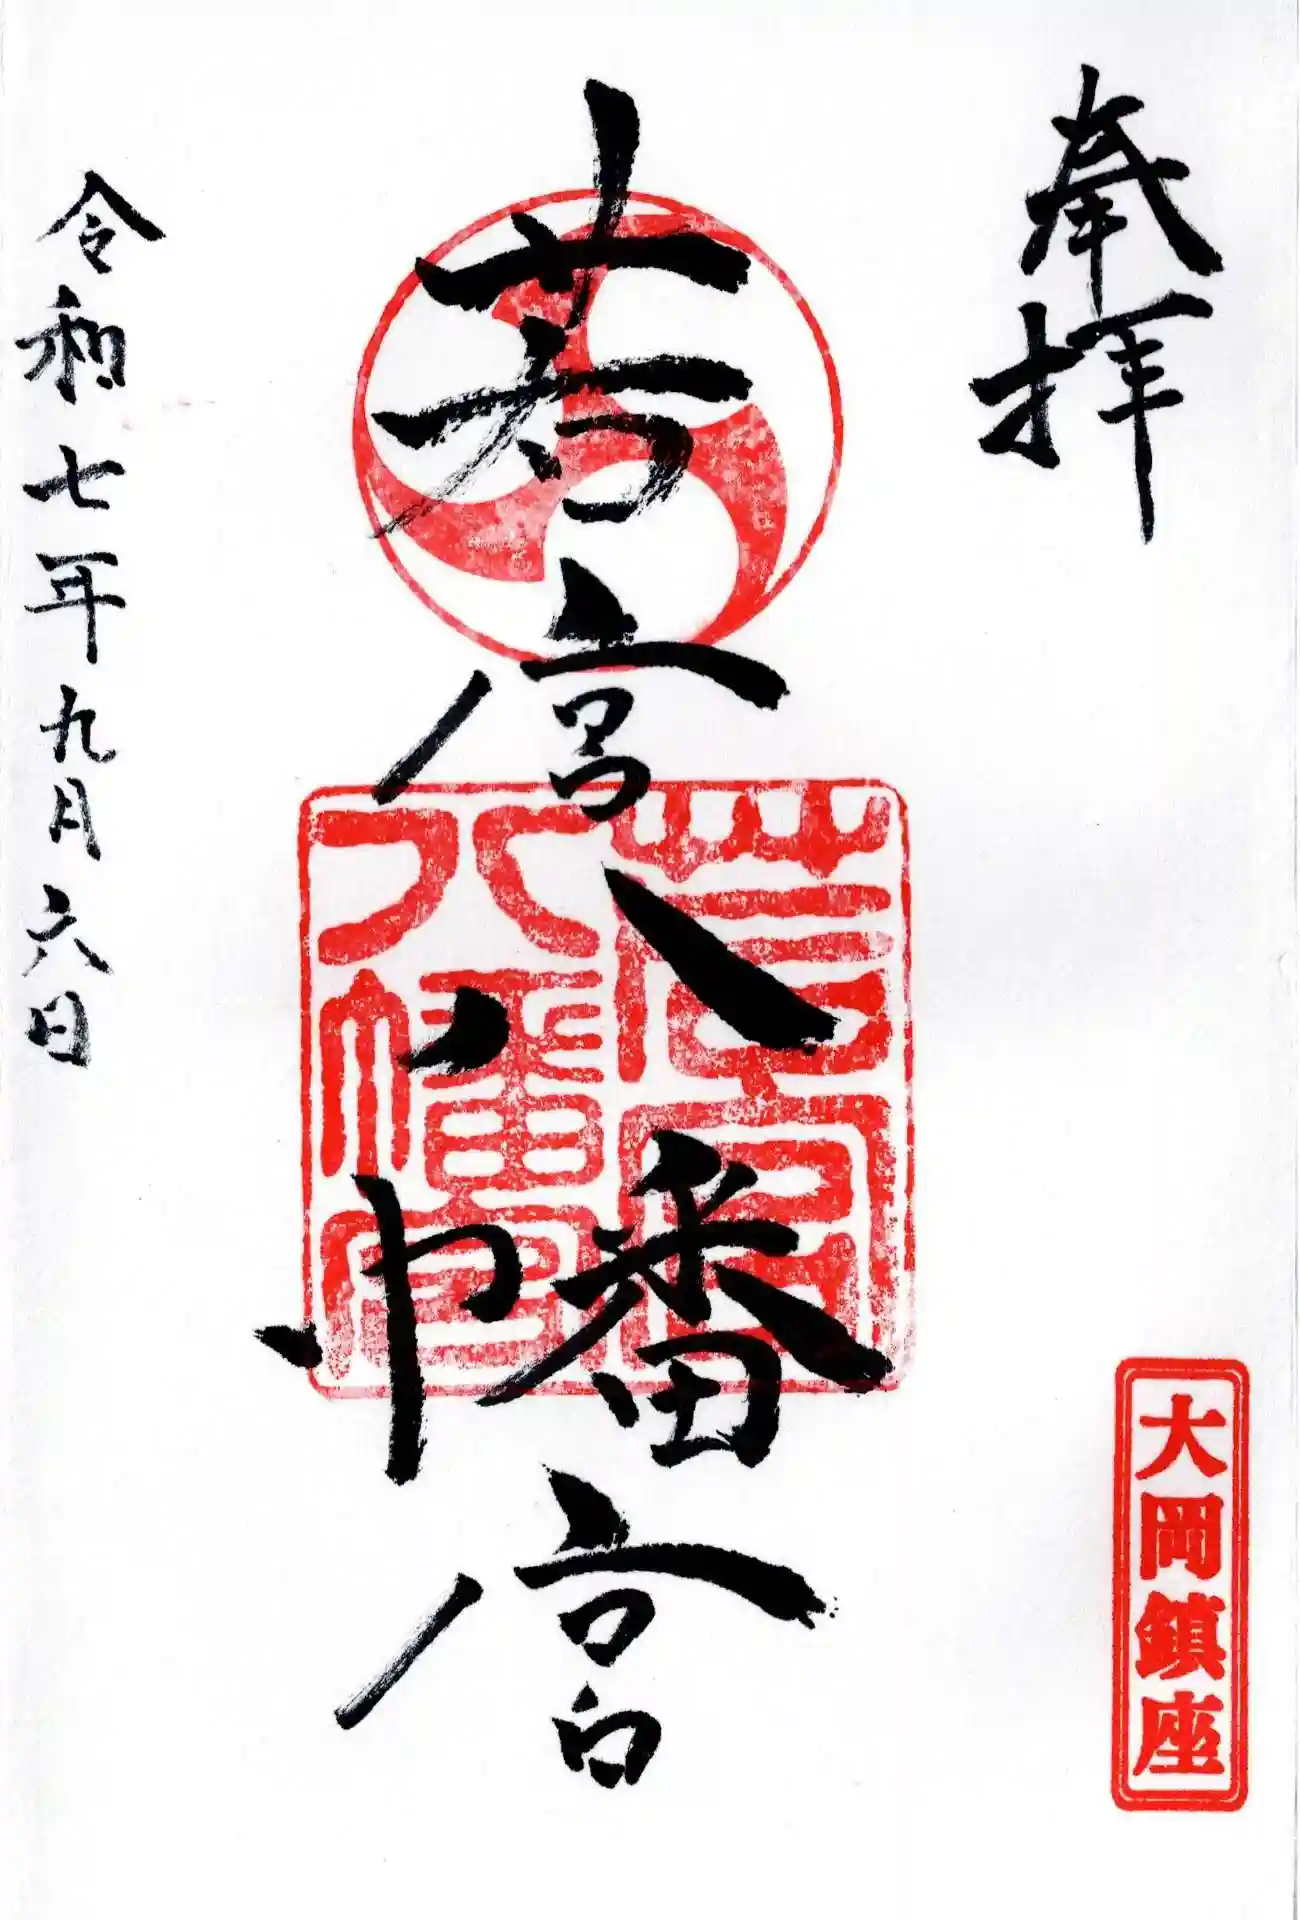 奉拝
大岡鎮座
若宮八幡宮
若宮
八幡宮
令和七年九月六日